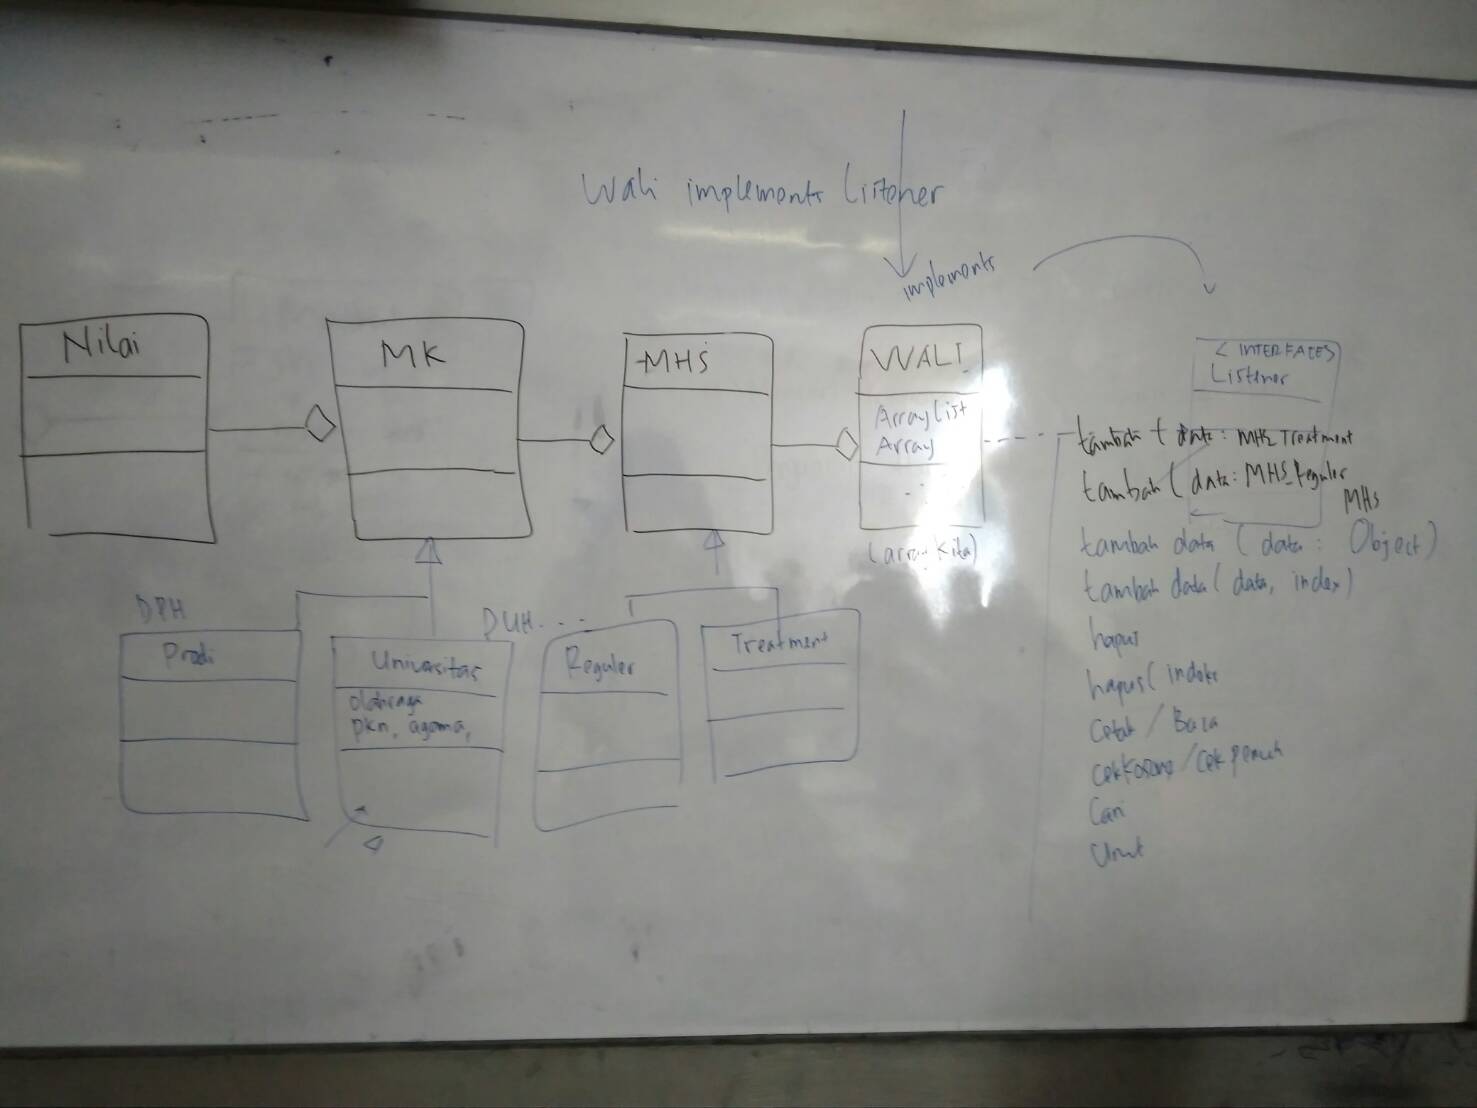 Wali implements Listener
implements
Nilai
MK
MHS
WALI
ArrayList
Array
(array kita)
< INTERFACES
Listener
tambah ( data: MHS Treatment
tambah ( data: MHS_Reguler
MHS
tambah data ( data : Object)
tambah data ( data, index)
hapus
hapus ( indeks
Cetak / Baca
cekKosong / cek penuh
Cari
Urut
DPH
Prodi
Universitas
olahraga
pkn, agama,
DUH...
Reguler
Treatment